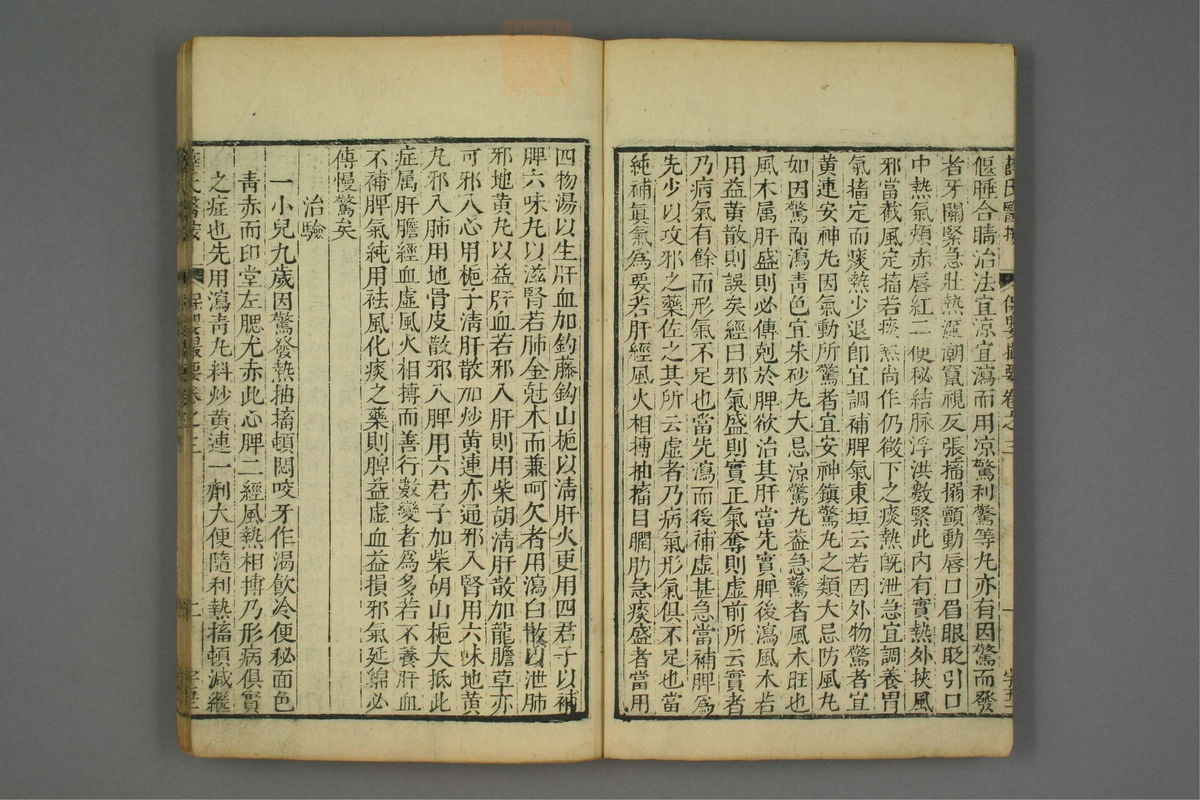 偃睡合睛治法宜凉宜瀉而用凉驚利驚等丸亦有因驚而發
者牙關緊急壯熱涎潮竄視反張搐搦顫動唇口眉眼眨引口
中熱氣頰赤唇紅二便秘結脉浮洪數緊此内有實熱外挾風
邪當截風定搐若痰熱尚作仍微下之痰熱既泄急宜調養胃
氣搐定而痰熱少退卽宜調補脾氣東垣云若因外物驚者宜
黄連安神丸因氣動所驚者宜安神鎮驚丸之類大忌防風丸
如因驚而瀉青色宜朱砂丸大忌凉驚丸葢急驚者風木旺也
風木属肝盛則必傳剋於脾欲治其肝當先實脾後瀉風木若
用益黄散則誤矣經曰邪氣盛則實正氣奪則虚前所云實者
乃病氣有餘而形氣不足也當先瀉而後補虚甚急當補脾爲
先少以攻邪之藥佐之其所云虚者乃病氣形氣俱不足也當
純補眞氣爲要若肝經風火相搏抽搐目瞤肋急痰盛者當用
四物湯以生肝血加鈎藤鈎山梔以清肝火更用四君子以補
脾六味丸以滋腎若肺金尅木而兼呵欠者用瀉白散以泄肺
邪地黄丸以益肝血若邪入肝則用柴胡清肝散加龍膽草亦
可邪入心用梔子清肝散加炒黄連亦通邪入腎用六味地黄
丸邪入肺用地骨皮散邪入脾用六君子加柴胡山梔大抵此
症属肝膽經血虚風火相搏而善行數變者爲多若不養肝血
不補脾氣純用祛風化痰之藥則脾益虚血益損邪氣延綿必
傳慢驚矣
治驗
一小兒九歲因驚發熱抽搐頓悶咬牙作渴飲冷便秘面色
青赤而印堂左腮尤赤此心脾二經風熱相搏乃形病俱實
之症也先用瀉青丸料炒黄連一劑大便隨利熱搐頓減繼